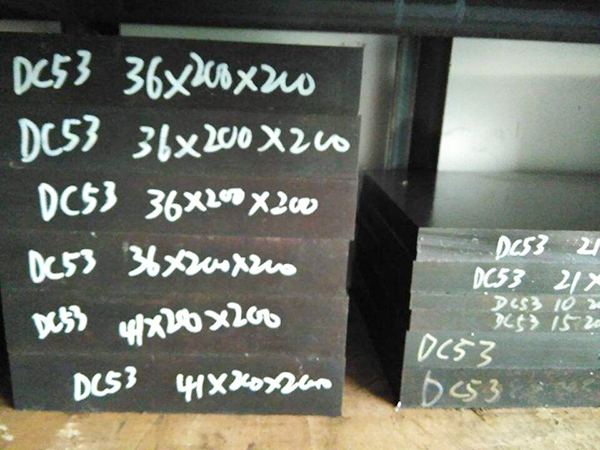 DC53 36X200X200
DC53 36X200X200
DC53 36X200X200
DC53 36X200X200
DC53 41X200X200
DC53 41X200X200
DC53 21
DC53 21X
DC53 10 20
DC53 15 20
DC53
DC53